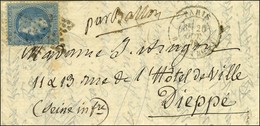 par Ballon
PARIS
Madame
11 & 13 rue de l'Hôtel de Ville
Dieppe
(Seine infre)